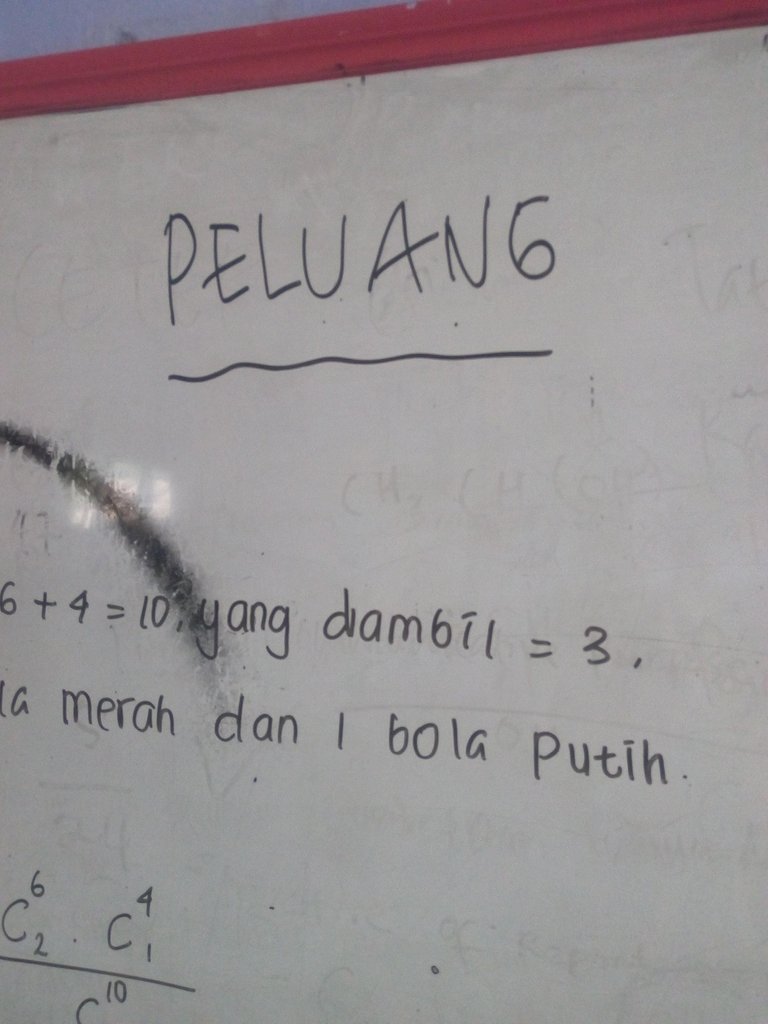 PELUANG
6 + 4 = 10, yang diambil = 3.
la merah dan 1 bola putih.
C⁶₂ . C⁴₁
C¹⁰